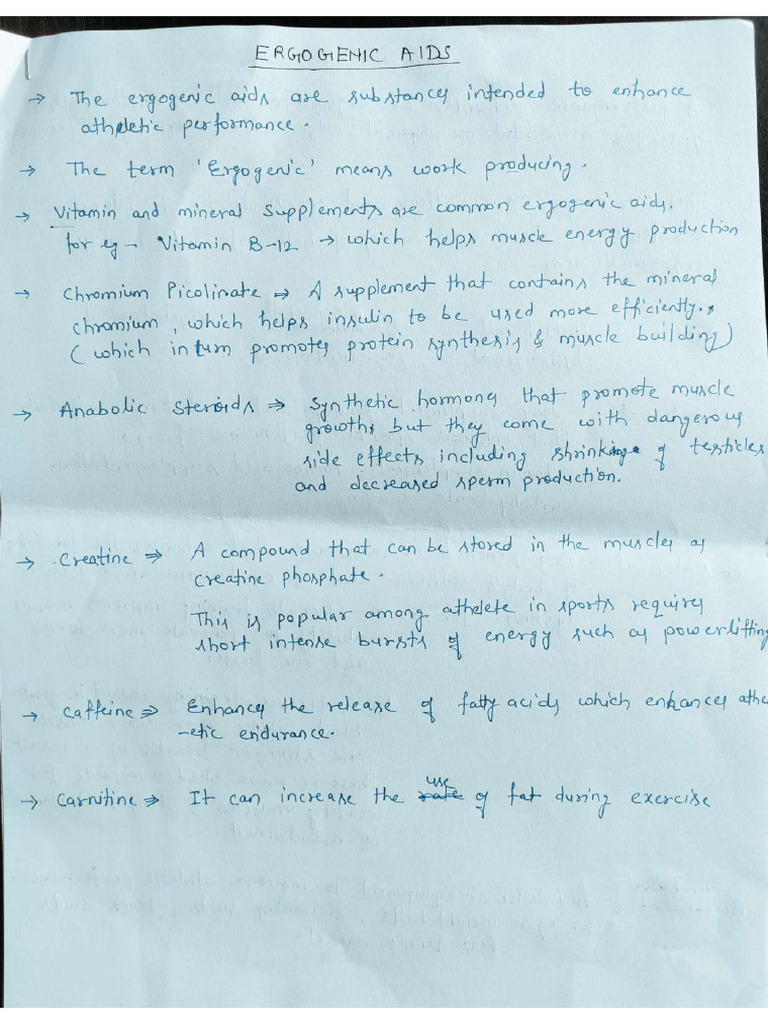 ERGOGENIC AIDS
→ The ergogenic aids are substances intended to enhance
athletic performance.
→ The term 'Ergogenic' means work producing.
→ Vitamin and mineral supplements are common ergogenic aids.
for eg - Vitamin B-12 → which helps muscle energy production
→ Chromium Picolinate ⇒ A supplement that contains the mineral
chromium, which helps insulin to be used more efficiently.
(which inturn promotes protein synthesis & muscle building)
→ Anabolic Steroids ⇒ Synthetic hormones that promote muscle
growth, but they come with dangerous
side effects including shrinkage of testicles
and decreased sperm production.
→ Creatine ⇒ A compound that can be stored in the muscles as
creatine phosphate.
This is popular among athelete in sports requires
short intense bursts of energy such as powerlifting
→ Caffeine ⇒ Enhances the release of fatty acids which enhances athe
-etic endurance.
→ Carnitine ⇒ It can increase the use of fat during exercise